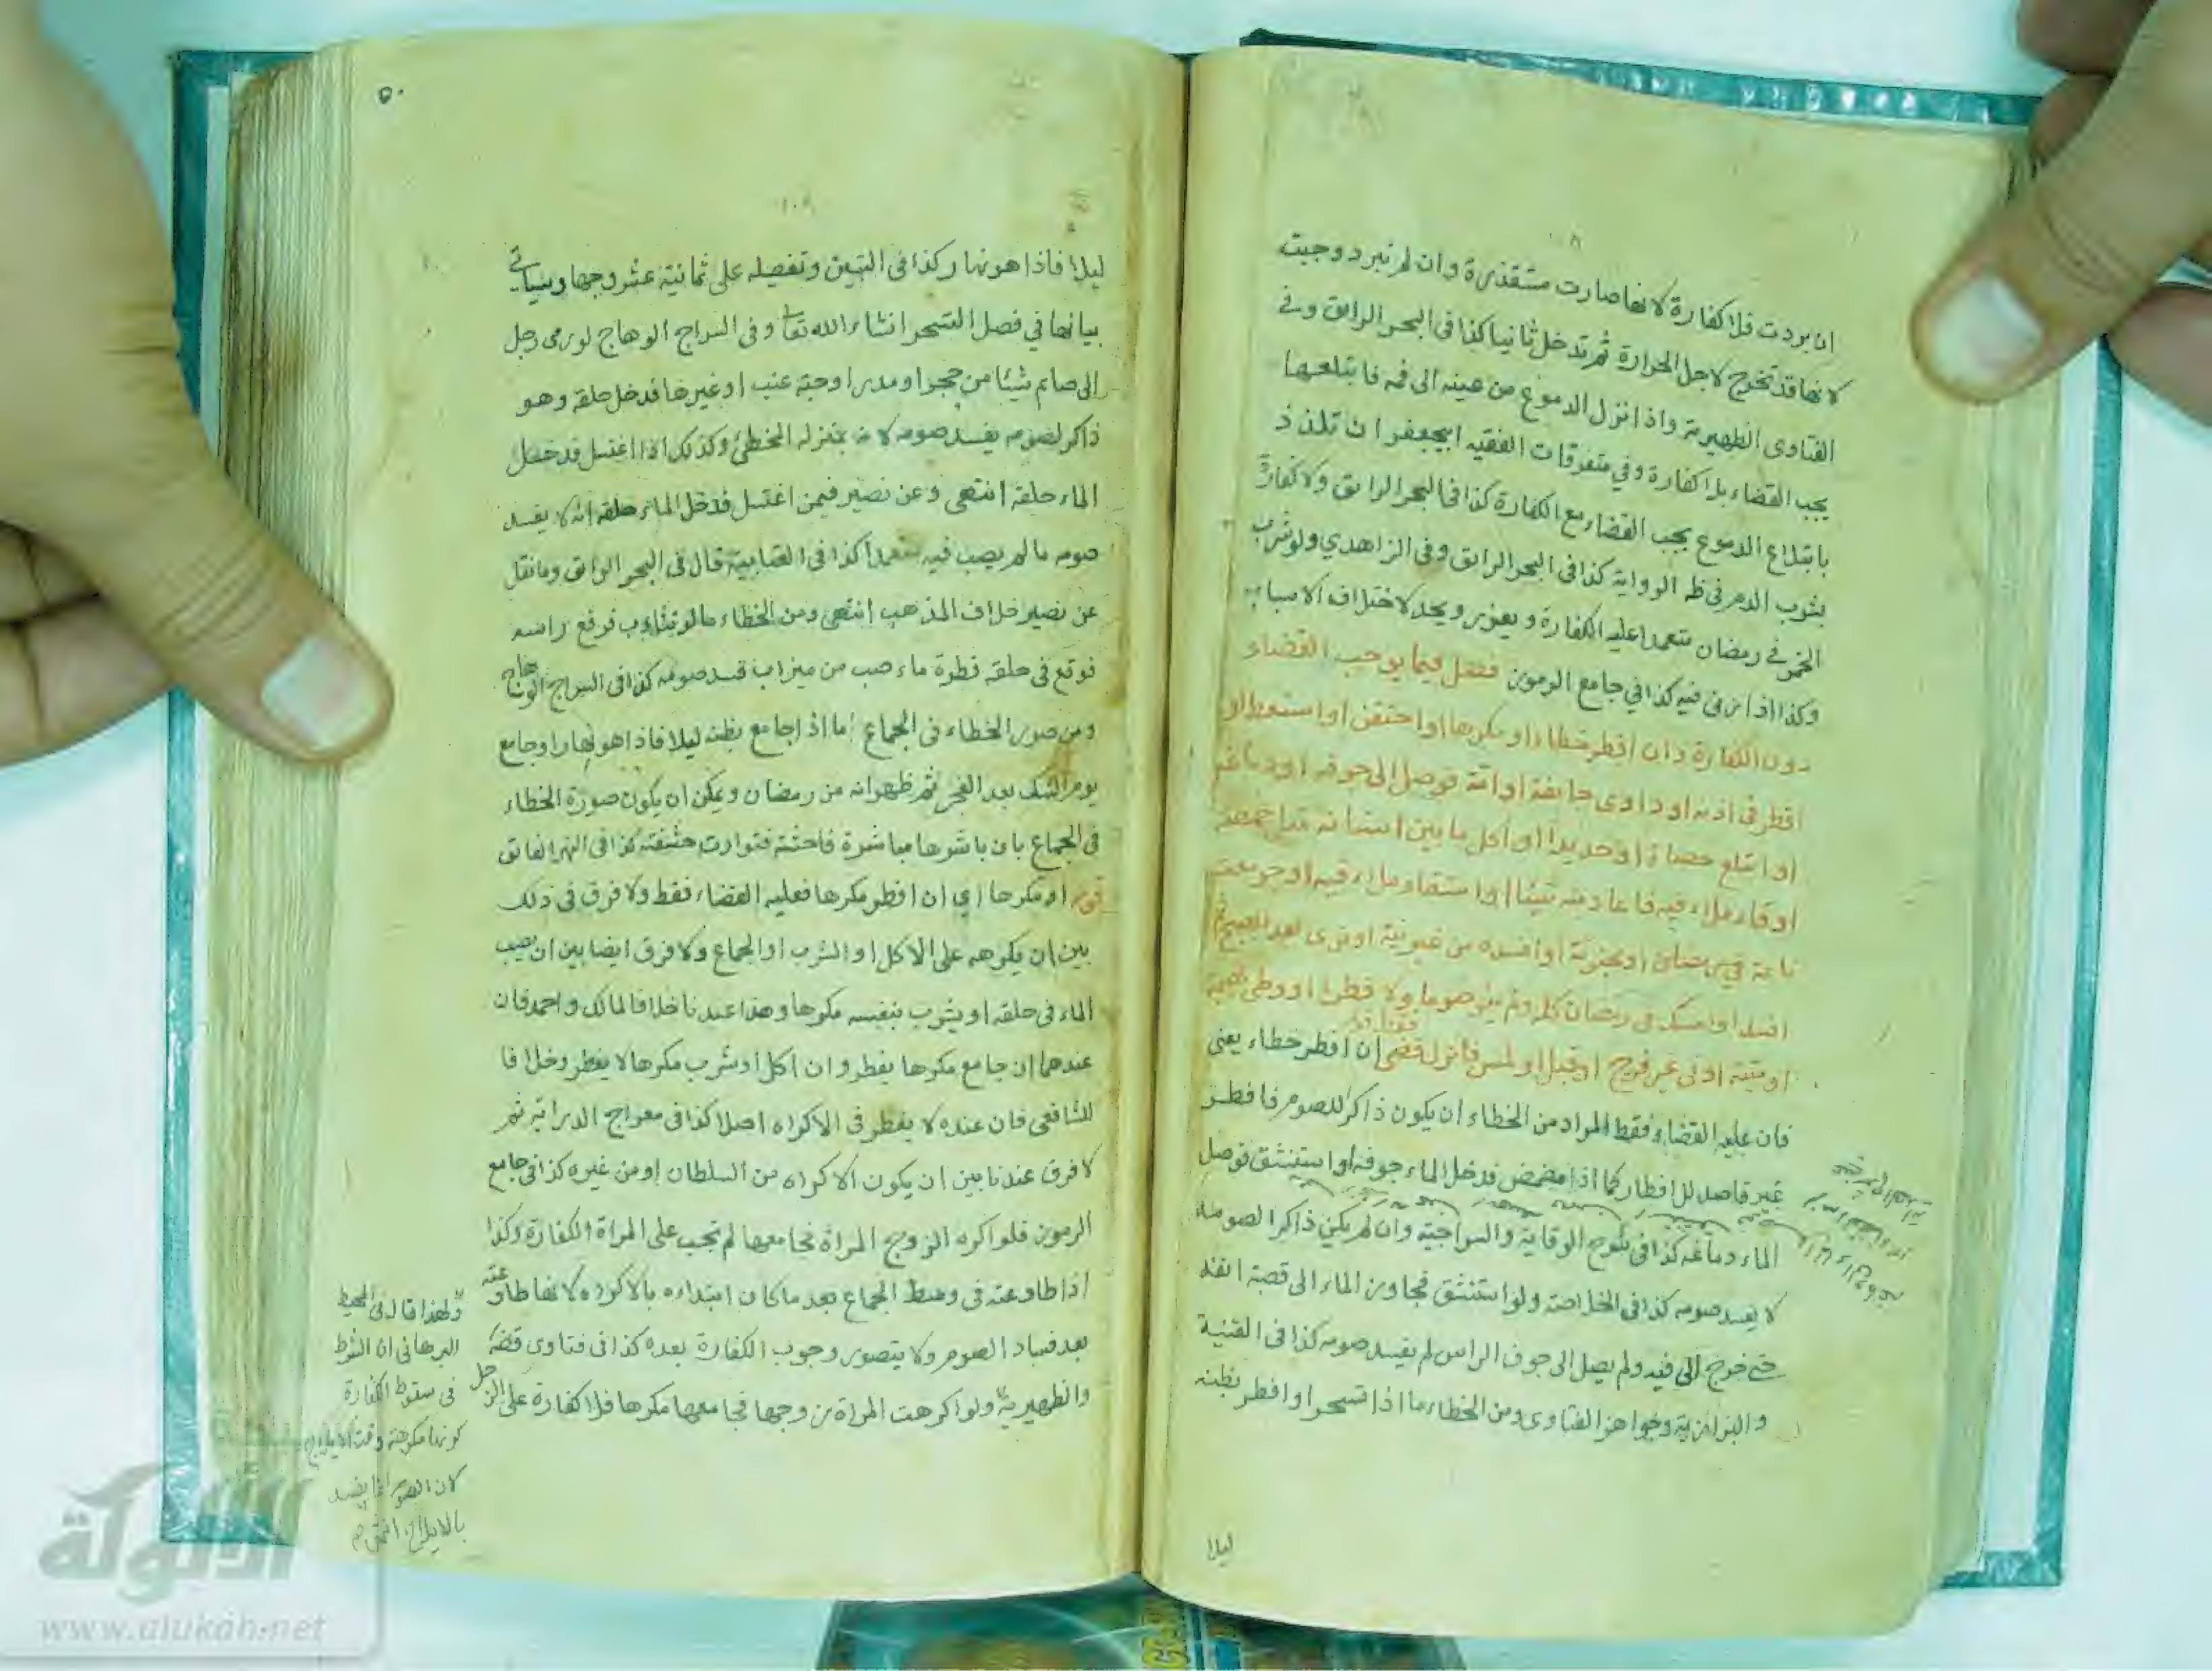 ان بردت فلا كفارة لانها صارت مستقذرة وان لم تبرد وجبت
لانها قد تخرج لاجل الحرارة ثم تدخل ثانيا كذا في البحر الرائق وفي
الفتاوى الظهيرية واذا نزل الدموع من عينه الى فمه فابتلعها
يجب القضاء بلا كفارة وفي متفرقات الفقيه ابيجعفر ان تلذذ
بابتلاع الدموع يجب القضاء مع الكفارة كذا في البحر الرائق ولا كفارة
بشرب الدم في ظ الرواية كذا في البحر الرائق وفي الزاهدي ولو شرب
الخمر في رمضان متعمدا عليه الكفارة ويعزر ويحد لاختلاف الاسباب
وكذا اذا زنى فيه كذا في جامع الرموز فصل فيما يوجب القضاء
دون الكفارة وان افطر خطاء او مكرها او احتقن او استعط او
اقطر في اذنه او داوى جائفة او امة فوصل الى جوفه او دماغه
او ابتلع حصاة او حديدا او اكل ما بين اسنانه قدر حمصة
او قاء ملاء فيه فاعاد منه شيئا او استقاء ملاء فيه او جومعت
نائمة في رمضان او مجنونة او افسده من غير نية او نوى بعد الصبح ثم
افسد او امسك في رمضان كله ولم ينو صوما ولا فطرا او وطئ بهيمة
او ميتة او في غير فرج او قبل او لمس فانزل قضى ان افطر خطاء يعني
فقط قوله
فان عليه القضاء فقط المراد من الخطاء ان يكون ذاكرا للصوم فافطر
غير قاصد للافطار كما اذا مضمض فدخل الماء جوفه او استنشق فوصل
الماء دماغه كذا في شرح الوقاية والسراجية وان لم يكن ذاكرا لصومه
لا يفسد صومه كذا في الخلاصة ولو استنشق فجاوز الماء الى قصبة انفه
حتى خرج الى فيه ولم يصل الى جوف الراس لم يفسد صومه كذا في القنية
والبزازية وجواهر الفتاوى ومن الخطاء ما اذا تسحر او افطر بظنه
ليلا
٥٠
١٠٩
ليلا فاذا هو نهار كذا في التبيين وتفصيله على ثمانية عشر وجها وسياتي
بيانها في فصل التسحر انشاء الله تعا وفي السراج الوهاج لو رمى رجل
الى صائم شيئا من حجر او مدر او حبة عنب او غيرها فدخل حلقه وهو
ذاكر لصومه يفسد صومه لانه بمنزلة المخطئ وكذلك اذا اغتسل فدخل
الماء حلقه انتهى وعن نصير فيمن اغتسل فدخل الماء حلقه انه لا يفسد
صومه ما لم يصب فيه متعمدا كذا في العتابية قال في البحر الرائق وما نقل
عن نصير خلاف المذهب انتهى ومن الخطاء ما لو تثاءب فرفع راسه
فوقع في حلقه قطرة ماء صب من ميزاب فسد صومه كذا في السراج الوهاج
ومن صور الخطاء في الجماع اما اذا جامع بظنه ليلا فاذا هو نهارا وجامع
يوم الشك بعد الفجر ثم ظهر انه من رمضان ويمكن ان يكون صورة الخطاء
في الجماع بان باشرها مباشرة فاحشة فتوارت حشفته كذا في النهر الفائق
قوله او مكرها اي ان افطر مكرها فعليه القضاء فقط ولا فرق في ذلك
بين ان يكرهه على الاكل او الشرب او الجماع ولا فرق ايضا بين ان يصب
الماء في حلقه او يشرب بنفسه مكرها وهذا عندنا خلافا لمالك واحمد فان
عندهما ان جامع مكرها يفطر وان اكل او شرب مكرها لا يفطر وخلافا
للشافعي فان عنده لا يفطر في الاكراه اصلا كذا في معراج الدراية ثم
لا فرق عندنا بين ان يكون الاكراه من السلطان او من غيره كذا في جامع
الرموز فلو اكره الزوج المراة فجامعها لم تجب على المراة الكفارة وكذا
اذا طاوعته في وسط الجماع بعد ما كان ابتداءه بالاكراه لانها طاوعته
بعد فساد الصوم ولا يتصور وجوب الكفارة بعده كذا في فتاوى
والظهيرية ولو اكرهت المراة زوجها فجامعها مكرها فلا كفارة على الرجل
ولهذا قال في المحيط
البرهاني ان الشرط
في سقوط الكفارة
كونها مكرهة وقت الايلاج
لان الصوم انما يفسد
بالايلاج انتهى
الألوكة
www.alukah.net